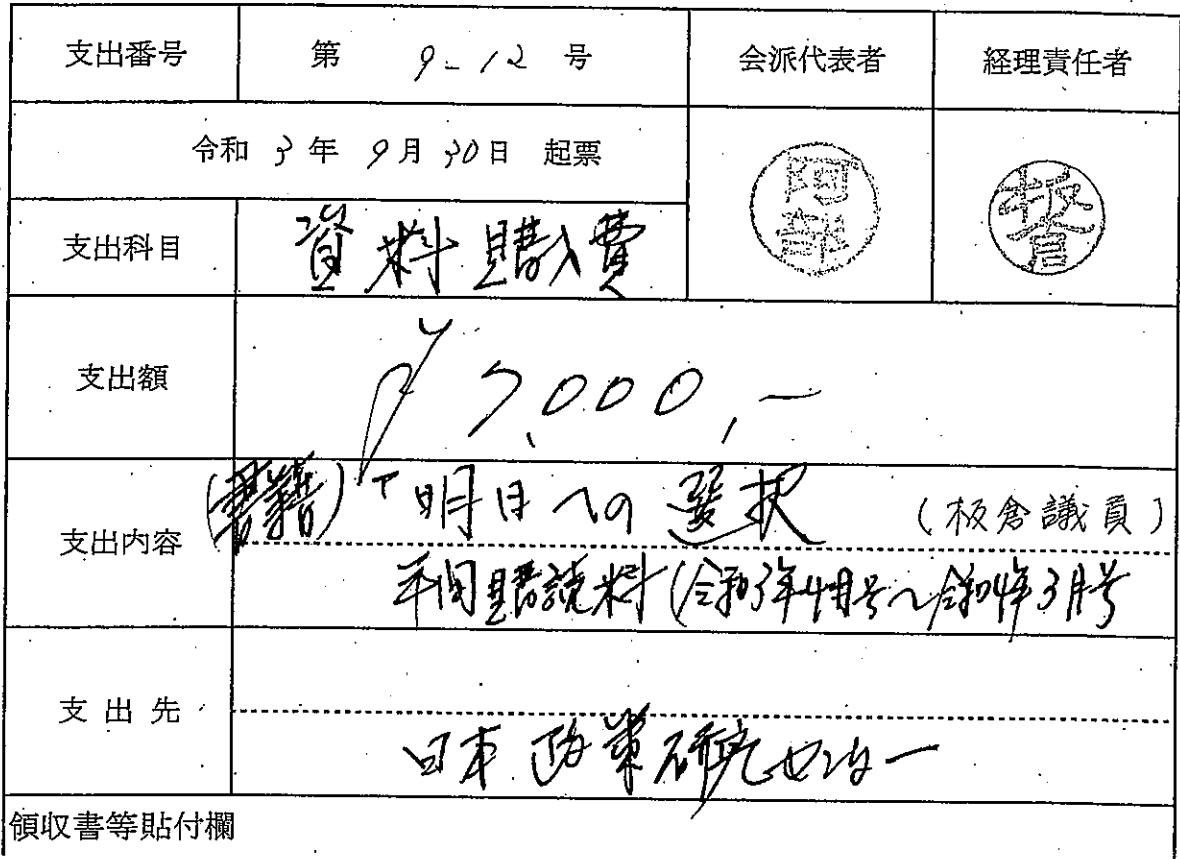 支出番号 第 9-12 号 会派代表者 経理責任者
令和 3 年 9 月 30 日 起票
阿部
支出科目 資料購入費
支出額 ¥7,000,-
(書籍)「明日への選択 (板倉議員)
支出内容
年間購読料(令和3年4月号~令和4年3月号
支出先
日本政策研究センター
領収書等貼付欄